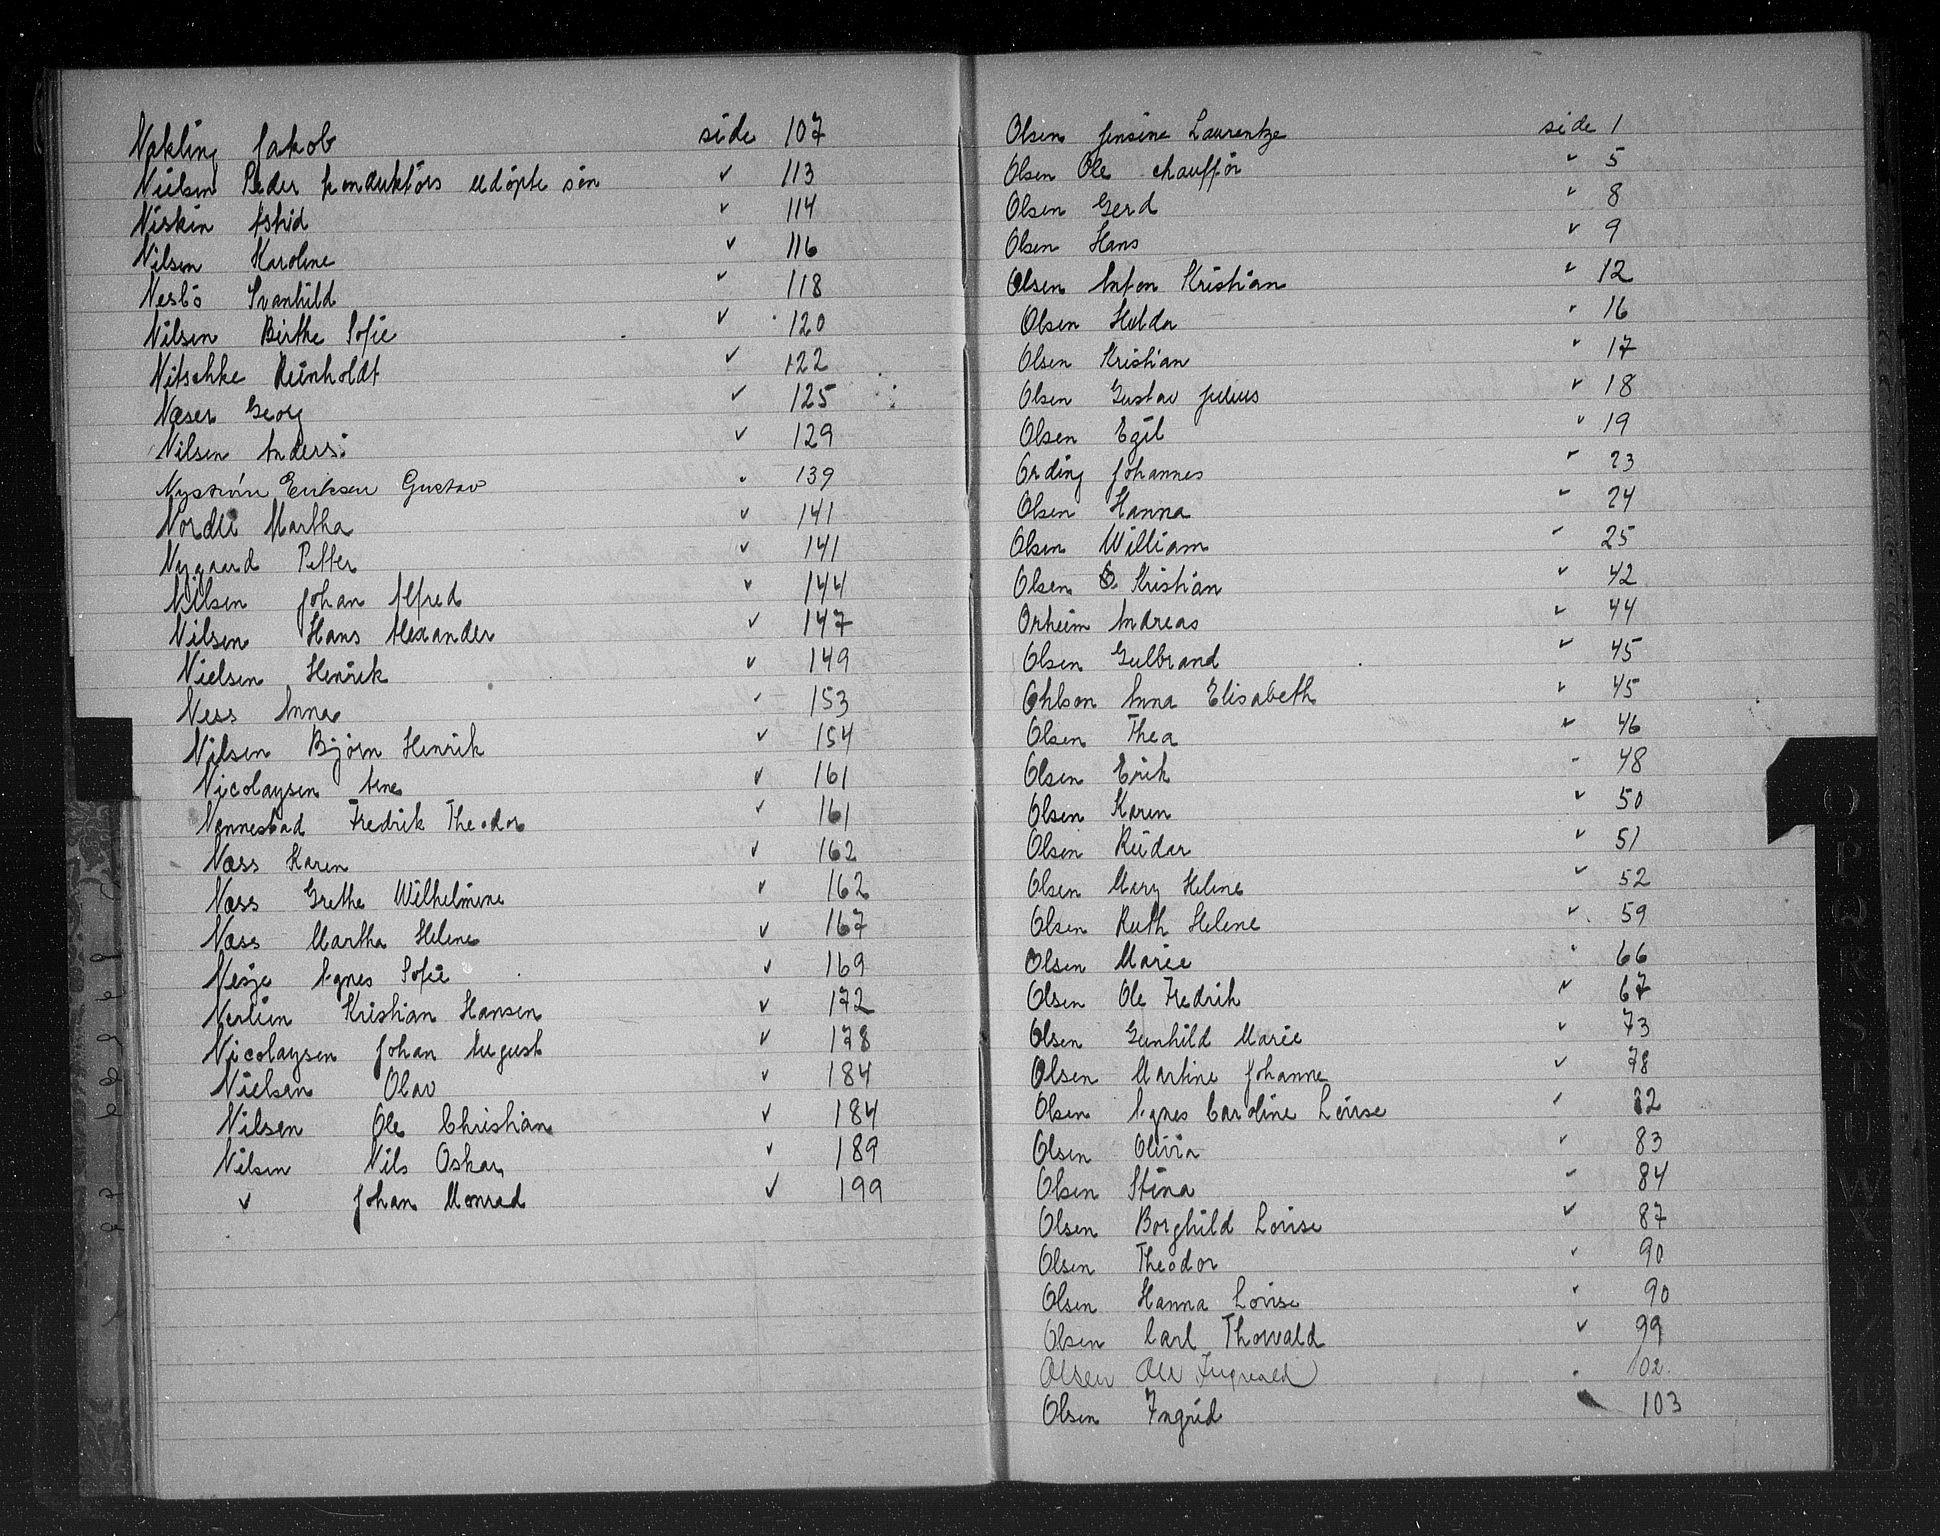 Nakling Jakob side 107
Nielsen Peder konduktörs udöpte sön ✓ 113
Niskin Astrid ✓ 114
Nilsen Karoline ✓ 116
Nesbö Svanhild ✓ 118
Nilsen Birthe Sofie ✓ 120
Nitschke Reinholdt ✓ 122
Næser Georg ✓ 125
Nilsen Anders ✓ 129
Nyström Eriksen Gustav " 139
Nordli Martha ✓ 141
Nygaard Petter ✓ 141
Nilsen Johan Alfred ✓ 144
Nilsen Hans Alexander ✓ 147
Nielsen Henrik ✓ 149
Ness Anna ✓ 153
Nilsen Björn Henrik ✓ 154
Nicolaysen Arne ✓ 161
Nennestad Fredrik Theodor ✓ 161
Næss Karen ✓ 162
Næss Grethe Wilhelmine ✓ 162
Næss Martha Helene ✓ 167
Nesje Agnes Sofie ✓ 169
Nerlien Kristian Hansen ✓ 172
Nicolaysen Johan August ✓ 178
Nielsen Olav ✓ 184
Nilsen Ole Christian ✓ 184
Nilsen Nils Oskar ✓ 189
✓ Johan Monrad ✓ 199
Olsen Jensine Laurentze side 1
Olsen Ole chaufför ✓ 5
Olsen Gerd ✓ 8
Olsen Hans ✓ 9
Olsen Anton Kristian ✓ 12
Olsen Haldor ✓ 16
Olsen Kristian ✓ 17
Olsen Gustav Julius ✓ 18
Olsen Egil ✓ 19
Ording Johannes ✓ 23
Olsen Hanna ✓ 24
Olsen William ✓ 25
Olsen Kristian ✓ 42
Orheim Andreas ✓ 44
Olsen Gulbrand ✓ 45
Ohlson Anna Elisabeth ✓ 45
Olsen Thea ✓ 46
Olsen Erik - 48
Olsen Karen ✓ 50
Olsen Reidar ✓ 51
Olsen Mary Helene ✓ 52
Olsen Ruth Helene ✓ 59
Olsen Marie ✓ 66
Olsen Ole Fredrik ✓ 67
Olsen Gunhild Marie ✓ 73
Olsen Martine Johanne ✓ 78
Olsen Agnes Caroline Lovise ✓ 82
Olsen Olivia ✓ 83
Olsen Stina ✓ 84
Olsen Borghild Lovise ✓ 87
Olsen Theodor ✓ 90
Olsen Hanna Lovise ✓ 90
Olsen Carl Thorvald ✓ 99
Olsen Ole Ingvald " 102
Olsen Ingrid 103
O
P
Q
R
S
T
U
W
X
Y
Z